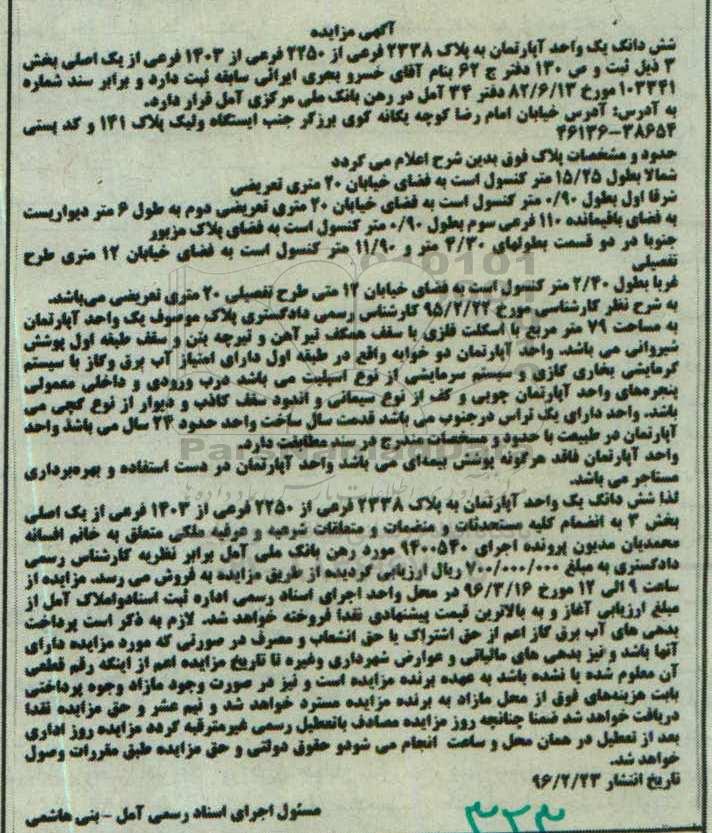 آگهی مزایده
شش دانگ یک واحد آپارتمان به پلاک ۲۳۳۸ فرعی از ۲۲۵۰ فرعی از ۱۴۰۳ فرعی از یک اصلی بخش
۳ ذیل ثبت و ص ۱۳۰ دفتر ج ۶۲ بنام آقای خسرو بحری ایرائی سابقه ثبت دارد و برابر سند شماره
۱۰۳۳۴۱ مورخ ۸۲/۶/۱۳ دفتر ۳۴ آمل در رهن بانک ملی مرکزی آمل قرار دارد.
به آدرس: آدرس خیابان امام رضا کوچه یگانه کوی برزگر جنب ایستگاه ولیک پلاک ۱۴۱ و کد پستی
۴۶۱۳۶-۳۸۶۵۴
حدود و مشخصات پلاک فوق بدین شرح اعلام می گردد
شمالا بطول ۱۵/۲۵ متر کنسول است به فضای خیابان ۲۰ متری تعریضی
شرقا اول بطول ۰/۹۰ متر کنسول است به فضای خیابان ۲۰ متری تعریضی دوم به طول ۶ متر دیواریست
به فضای باقیمانده ۱۱۰ فرعی سوم بطول ۰/۹۰ متر کنسول است به فضای پلاک مزبور
جنوبا در دو قسمت بطولهای ۴/۳۰ متر و ۱۱/۹۰ متر کنسول است به فضای خیابان ۱۲ متری طرح
تفصیلی
غربا بطول ۲/۴۰ متر کنسول است به فضای خیابان ۱۲ متی طرح تفصیلی ۲۰ متری تعریضی می‌باشد.
به شرح نظر کارشناسی مورخ ۹۵/۲/۲۲ کارشناس رسمی دادگستری پلاک موصوف یک واحد آپارتمان
به مساحت ۷۹ متر مربع با اسکلت فلزی با سقف همکف تیرآهن و تیرچه بتن و سقف طبقه اول پوشش
شیروانی می باشد. واحد آپارتمان دو خوابه واقع در طبقه اول دارای امتیاز آب برق وگاز با سیستم
گرمایشی بخاری گازی و سیستم سرمایشی از نوع اسپلیت می باشد درب ورودی و داخلی معمولی
پنجره‌های واحد آپارتمان چوبی و کف از نوع سیمانی و اندود سقف کاذب و دیوار از نوع گچی می
باشد. واحد دارای یک تراس درجنوب می باشد قدمت سال ساخت واحد حدود ۲۳ سال می باشد واحد
آپارتمان در طبیعت با حدود و مسخصات مندرج در سند مطابقت دارد.
واحد آپارتمان فاقد هرگونه پوشش بیمه‌ای می باشد واحد آپارتمان در دست استفاده و بهره‌برداری
مستاجر می باشد.
لذا شش دانگ یک واحد آپارتمان به پلاک ۲۳۳۸ فرعی از ۲۲۵۰ فرعی از ۱۴۰۳ فرعی از یک اصلی
بخش ۳ به انضمام کلیه مستحدثات و منضمات و متعلقات شرعیه و عرفیه ملکی متعلق به خانم افسانه
محمدیان مدیون پرونده اجرای ۹۴۰۰۵۴۰ مورد رهن بانک ملی آمل برابر نظریه کارشناس رسمی
دادگستری به مبلغ ۷۰۰/۰۰۰/۰۰۰ ریال ارزیابی گردیده از طریق مزایده به فروش می رسد. مزایده از
ساعت ۹ الی ۱۲ مورخ ۹۶/۳/۱۶ در محل واحد اجرای اسناد رسمی اداره ثبت اسنادواملاک آمل از
مبلغ ارزیابی آغاز و به بالاترین قیمت پیشنهادی نقدا فروخته خواهد شد. لازم به ذکر است پرداخت
بدهی های آب برق گاز اعم از حق اشتراک یا حق انشعاب و مصرف در صورتی که مورد مزایده دارای
آنها باشد و نیز بدهی های مالیاتی و عوارض شهرداری وغیره تا تاریخ مزایده اعم از اینکه رقم قطعی
آن معلوم شده یا نشده باشد به عهده برنده مزایده است و نیز در صورت وجود مازاد وجوه پرداختی
بابت هزینه‌های فوق از محل مازاد به برنده مزایده مسترد خواهد شد و نیم عشر و حق مزایده نقدا
دریافت خواهد شد ضمنا چنانچه روز مزایده مصادف باتعطیل رسمی غیرمترقبه گردد مزایده روز اداری
بعد از تعطیل در همان محل و ساعت انجام می شودو حقوق دولتی و حق مزایده طبق مقررات وصول
خواهد شد.
تاریخ انتشار ۹۶/۲/۲۳
مسئول اجرای اسناد رسمی آمل - بنی هاشمی